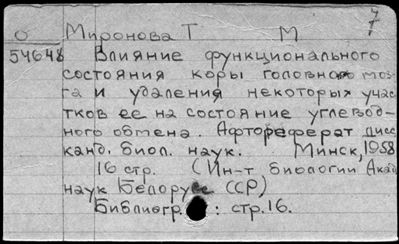 7
О Миронова Т М
54648 Влияние функционального
состояния коры головного моз-
га и удаления некоторых учас
тков ее на состояние углевод-
ного обмена. Афтореферат дисс
канд. биол. наук. Минск, 1958
16 стр. (Ин-т биологии Акад
наук Белорус ССР)
Библиогр. : стр. 16.